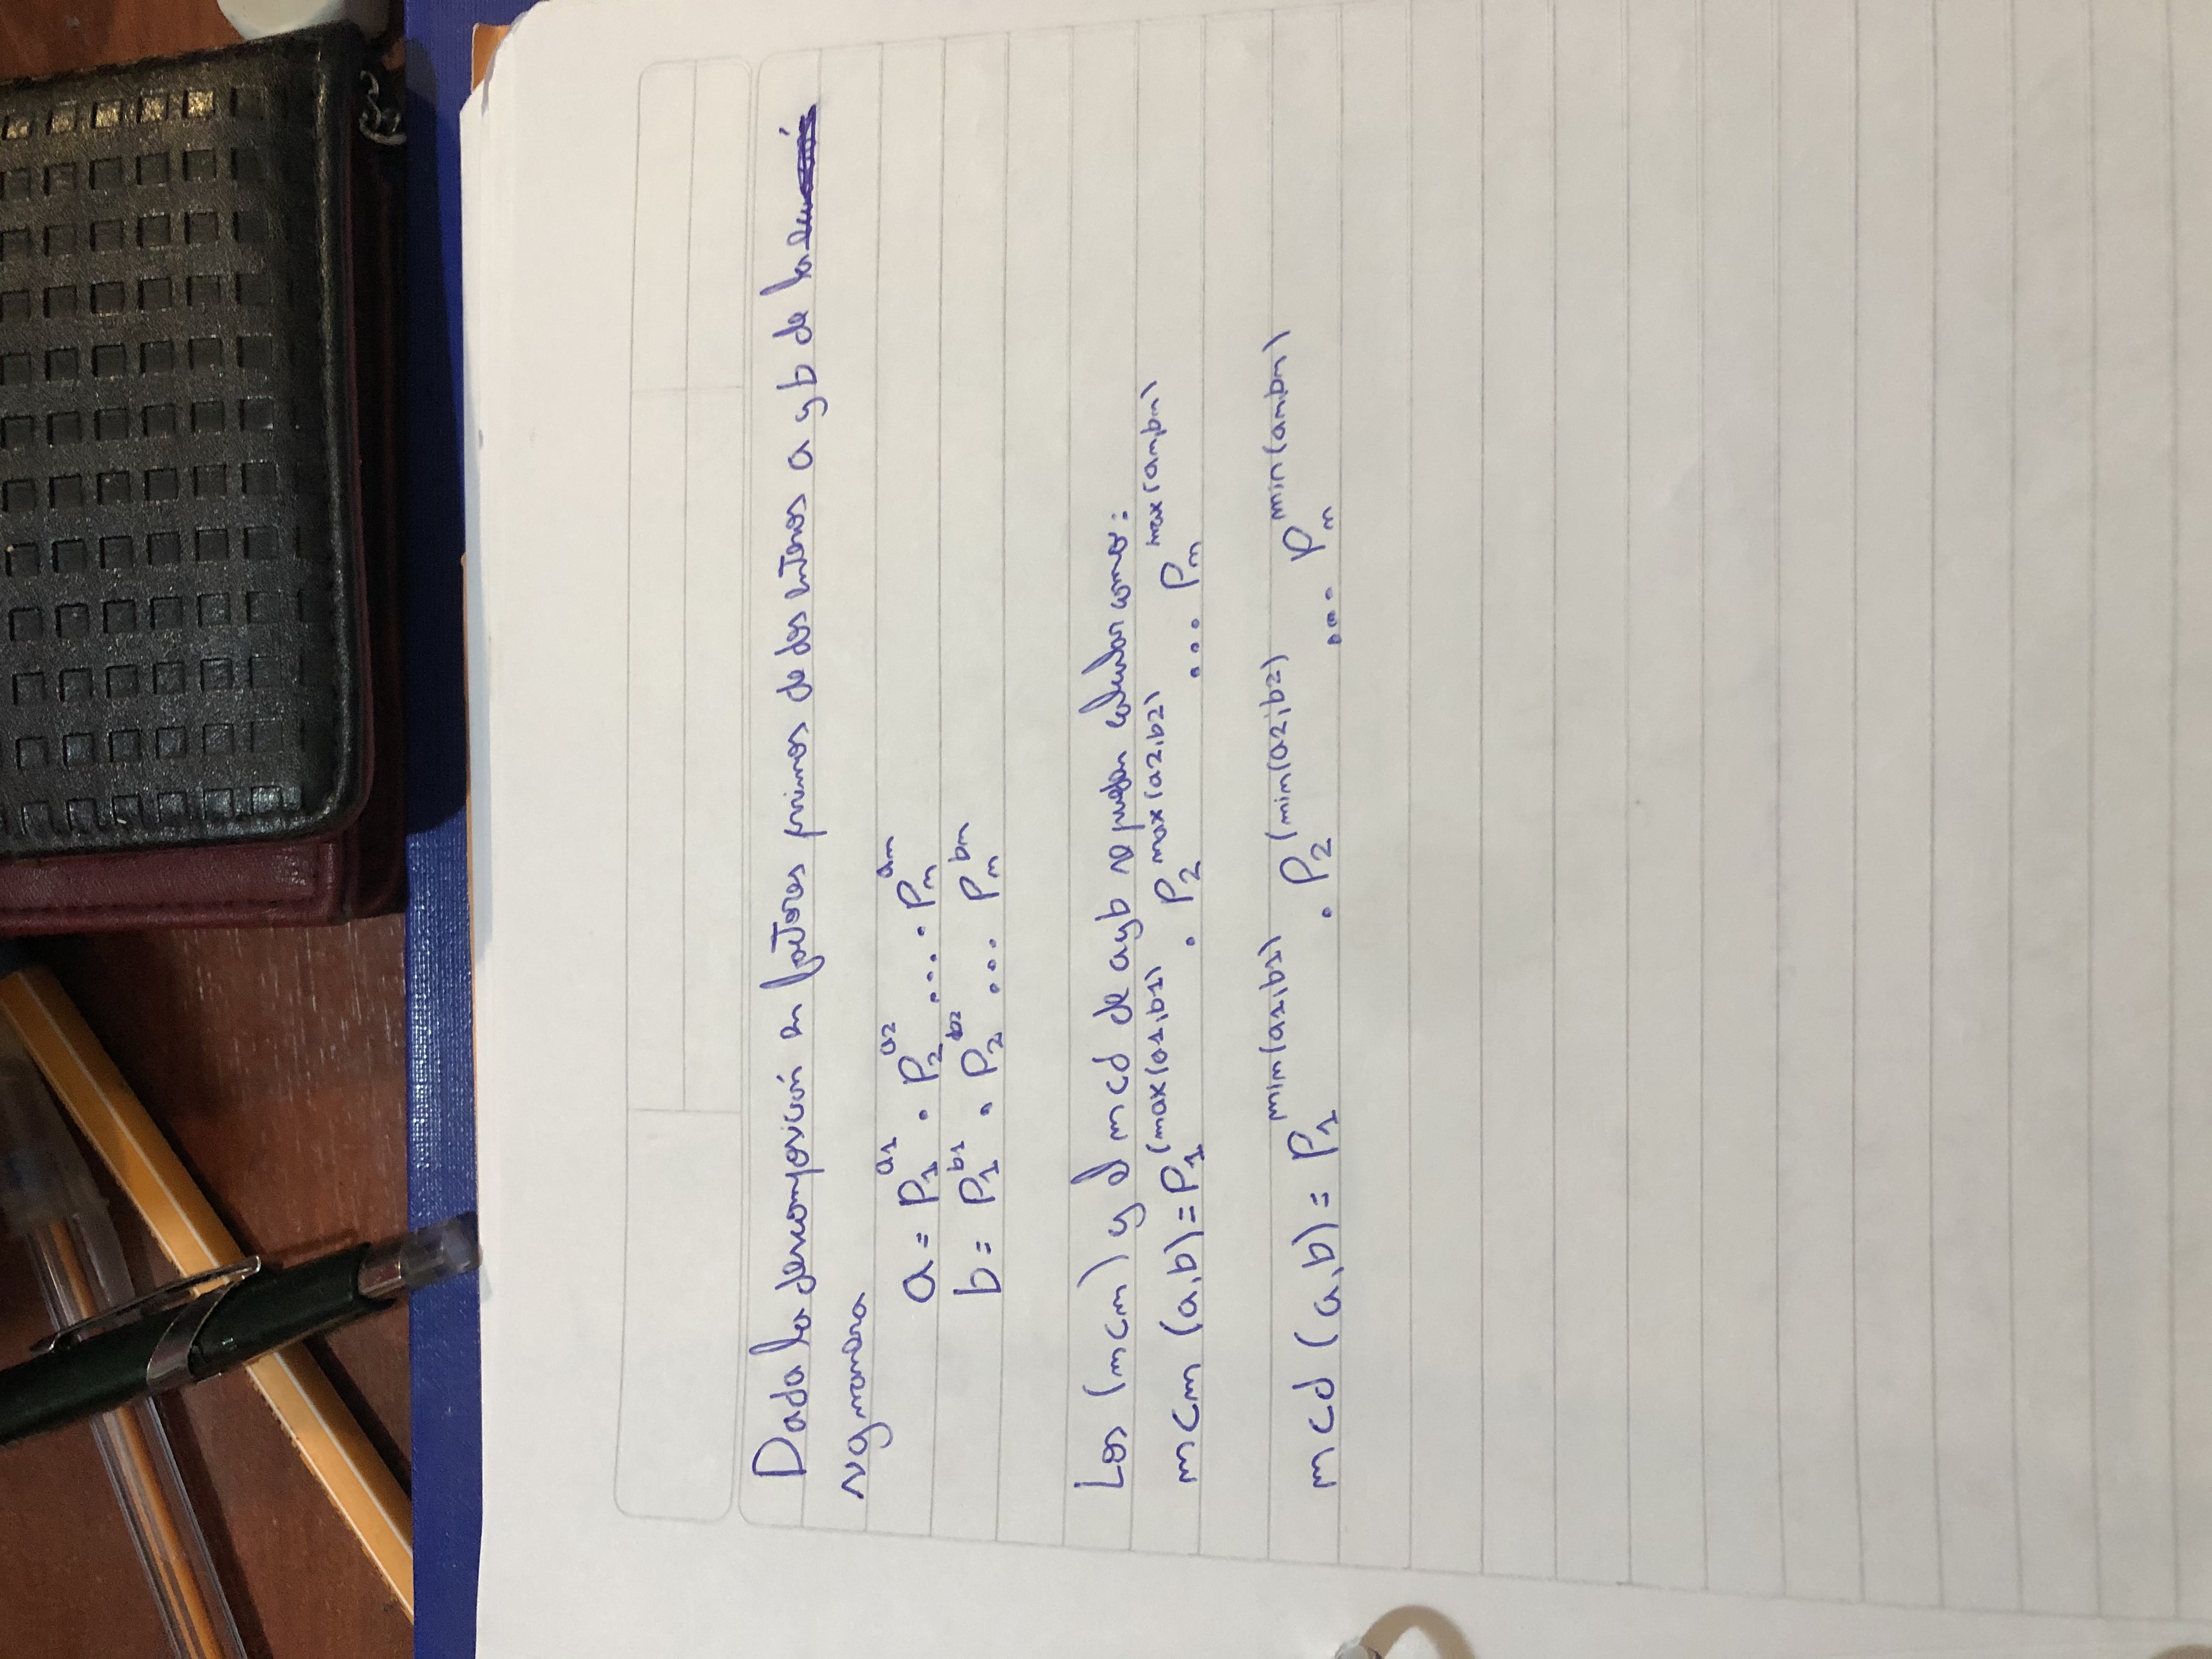 Dada la descomposición en factores primos de dos enteros a y b de la
sig manera
a = P₁^a1 · P₂^a2 .... · Pₙ^an
b = P₁^b1 · P₂^b2 ... Pₙ^bn
Los (mcm) y el mcd de a y b se pueden calcular como:
mcm (a,b) = P₁^(max(a1,b1) · P₂^max(a2,b2) ... Pₙ^max(an,bn)
mcd (a,b) = P₁^min(a1,b1) · P₂^(min(a2,b2) .... Pₙ^min(an,bn)